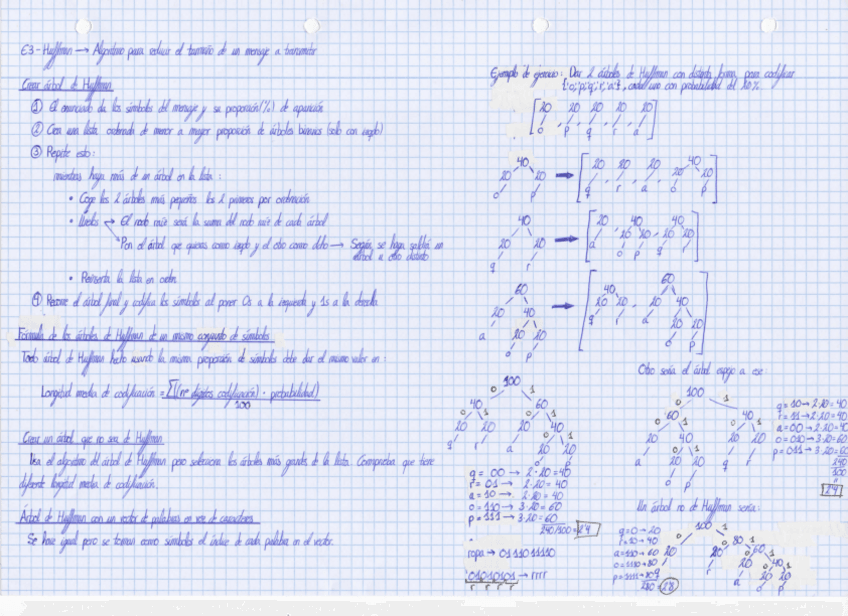 E3 - Huffman → Algoritmo para reducir el tamaño de un mensaje a transmitir
Crear árbol de Huffman
① El enunciado da los símbolos del mensaje y su proporción(%) de aparición
② Crea una lista ordenada de menor a mayor proporción de árboles binarios (solo con impb)
③ Repite esto:
mientras haya más de un árbol en la lista:
• Coge los 2 árboles más pequeños los 2 primeros por ordenación
• Únelos → El nodo raíz será la suma del nodo raíz de cada árbol
Pon el árbol que quieras como y el otro como → Según se haga saldrá un
árbol u otro distinto
• Reinserta la lista en orden
④ Recorre el árbol final y codifica los símbolos al poner 0s a la izquierda y 1s a la derecha
Fórmula de los árboles de Huffman de un mismo conjunto de símbolos
Todo árbol de Huffman hecho usando la misma proporción de símbolos debe dar el mismo valor en:
Longitud media de codificación = Σ((nº dígitos codificación) · probabilidad)
100
Crear un árbol que no sea de Huffman
Usa el algoritmo del árbol de Huffman pero selecciona los árboles más grandes de la lista. Comprueba que tiene
diferente longitud media de codificación.
Árbol de Huffman con un vector de palabras en vez de caracteres
Se hace igual pero se toman como símbolos el índice de cada palabra en el vector.
Ejemplo de ejercicio: Dar 2 árboles de Huffman con distinta forma para codificar
{'o','p','q','r','a'}, cada uno con probabilidad del 20%
[20 20 20 20 20]
o , p , q , r , a
40 → [20 20 20 40]
20 20 q , r , a , 20 20
o p o p
40 → [20 40 40]
20 20 a 20 20 , 20 20
q r o p q r
60 → [40 60]
20 40 20 20 , 20 40
a 20 20 q r a 20 20
o p o p
Otro sería el árbol espejo a ese:
100
0 1
40 60
0 1 0 1
20 20 20 40
q r a 0 1
20 20
o p
q = 00 → 2·20=40
r = 01 → 2·20=40
a = 10 → 2·20=40
o = 110 → 3·20=60
p = 111 → 3·20=60
240/100 = 2'4
ropa → 01110111110
01010101 → rrrr
r r r r
100
0 1
60 40
0 1 0 1
20 40 20 20
a 0 1 q r
20 20
o p
q = 10 → 2·20=40
r = 11 → 2·20=40
a = 00 → 2·20=40
o = 010 → 3·20=60
p = 011 → 3·20=60
240
100
2'4
Un árbol no de Huffman sería:
q = 0 → 20
r = 10 → 40
a = 110 → 60
o = 1110 → 80
p = 1111 → 80
280 → 2'8
100
0 1
20 80
q 0 1
20 60
r 0 1
20 40
a 0 1
20 20
o p